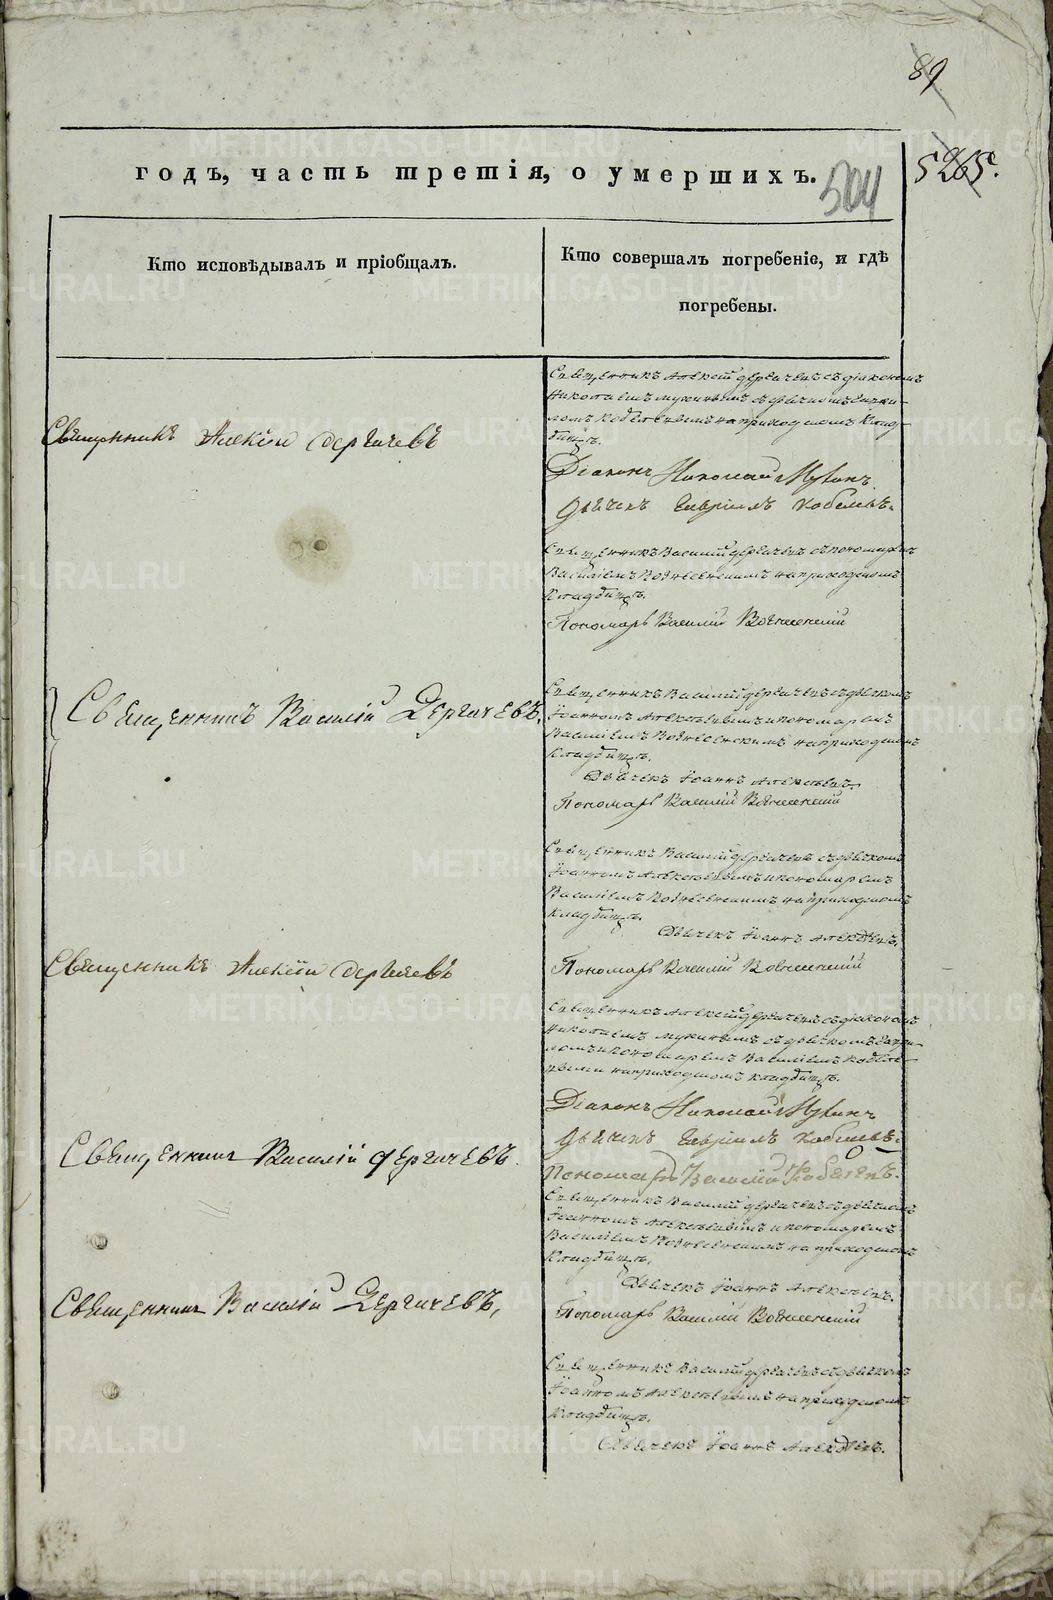 89
5265.
годъ, часть третія, о умершихъ.
504
Кто исповѣдывалъ и пріобщалъ.
Кто совершалъ погребеніе, и гдѣ
погребены.
Священникъ Алексій Дергачевъ
Священникъ Алексій Дергачевъ съ діакономъ
Николаемъ Мукинымъ съ дьячкомъ Гаври-
ломъ Кобелевымъ на приходскомъ клад-
бищѣ.
Діаконъ Николай Мукинъ
Дьячекъ Гавріилъ Кобелевъ.
Священникъ Василій Дергачевъ съ пономаремъ
Василіемъ Вознесенскимъ на приходскомъ
кладбищѣ.
Пономарь Василій Вознесенскій
Священникъ Василій Дергачевъ.
Священникъ Василій Дергачевъ съ дьячкомъ
Іоанномъ Алексѣевымъ и пономаремъ
Василіемъ Вознесенскимъ на приходскомъ
кладбищѣ.
Дьячекъ Іоаннъ Алексѣевъ.
Пономарь Василій Вознесенскій
Священникъ Василій Дергачевъ съ дьячкомъ
Іоанномъ Алексѣевымъ и пономаремъ
Василіемъ Вознесенскимъ на приходскомъ
кладбищѣ.
Дьячекъ Іоаннъ Алексѣевъ.
Священникъ Алексій Дергачевъ
Пономарь Василій Вознесенскій
Священникъ Алексій Дергачевъ съ діакономъ
Николаемъ Мукинымъ съ дьячкомъ Гаври-
ломъ и пономаремъ Василіемъ Кобеле-
выми на приходскомъ кладбищѣ.
Діаконъ Николай Мукинъ
Дьячекъ Гавріилъ Кобелевъ.
Священникъ Василій Дергачевъ.
Пономарь Василій Кобелевъ.
Священникъ Василій Дергачевъ съ дьячкомъ
Іоанномъ Алексѣевымъ и пономаремъ
Василіемъ Вознесенскимъ на приходскомъ
кладбищѣ.
Дьячекъ Іоаннъ Алексѣевъ.
Священникъ Василій Дергачевъ,
Пономарь Василій Вознесенскій
Священникъ Василій Дергачевъ съ дьячкомъ
Іоанномъ Алексѣевымъ на приходскомъ
кладбищѣ.
Дьячекъ Іоаннъ Алексѣевъ.
METRIKI.GASO-URAL.RU